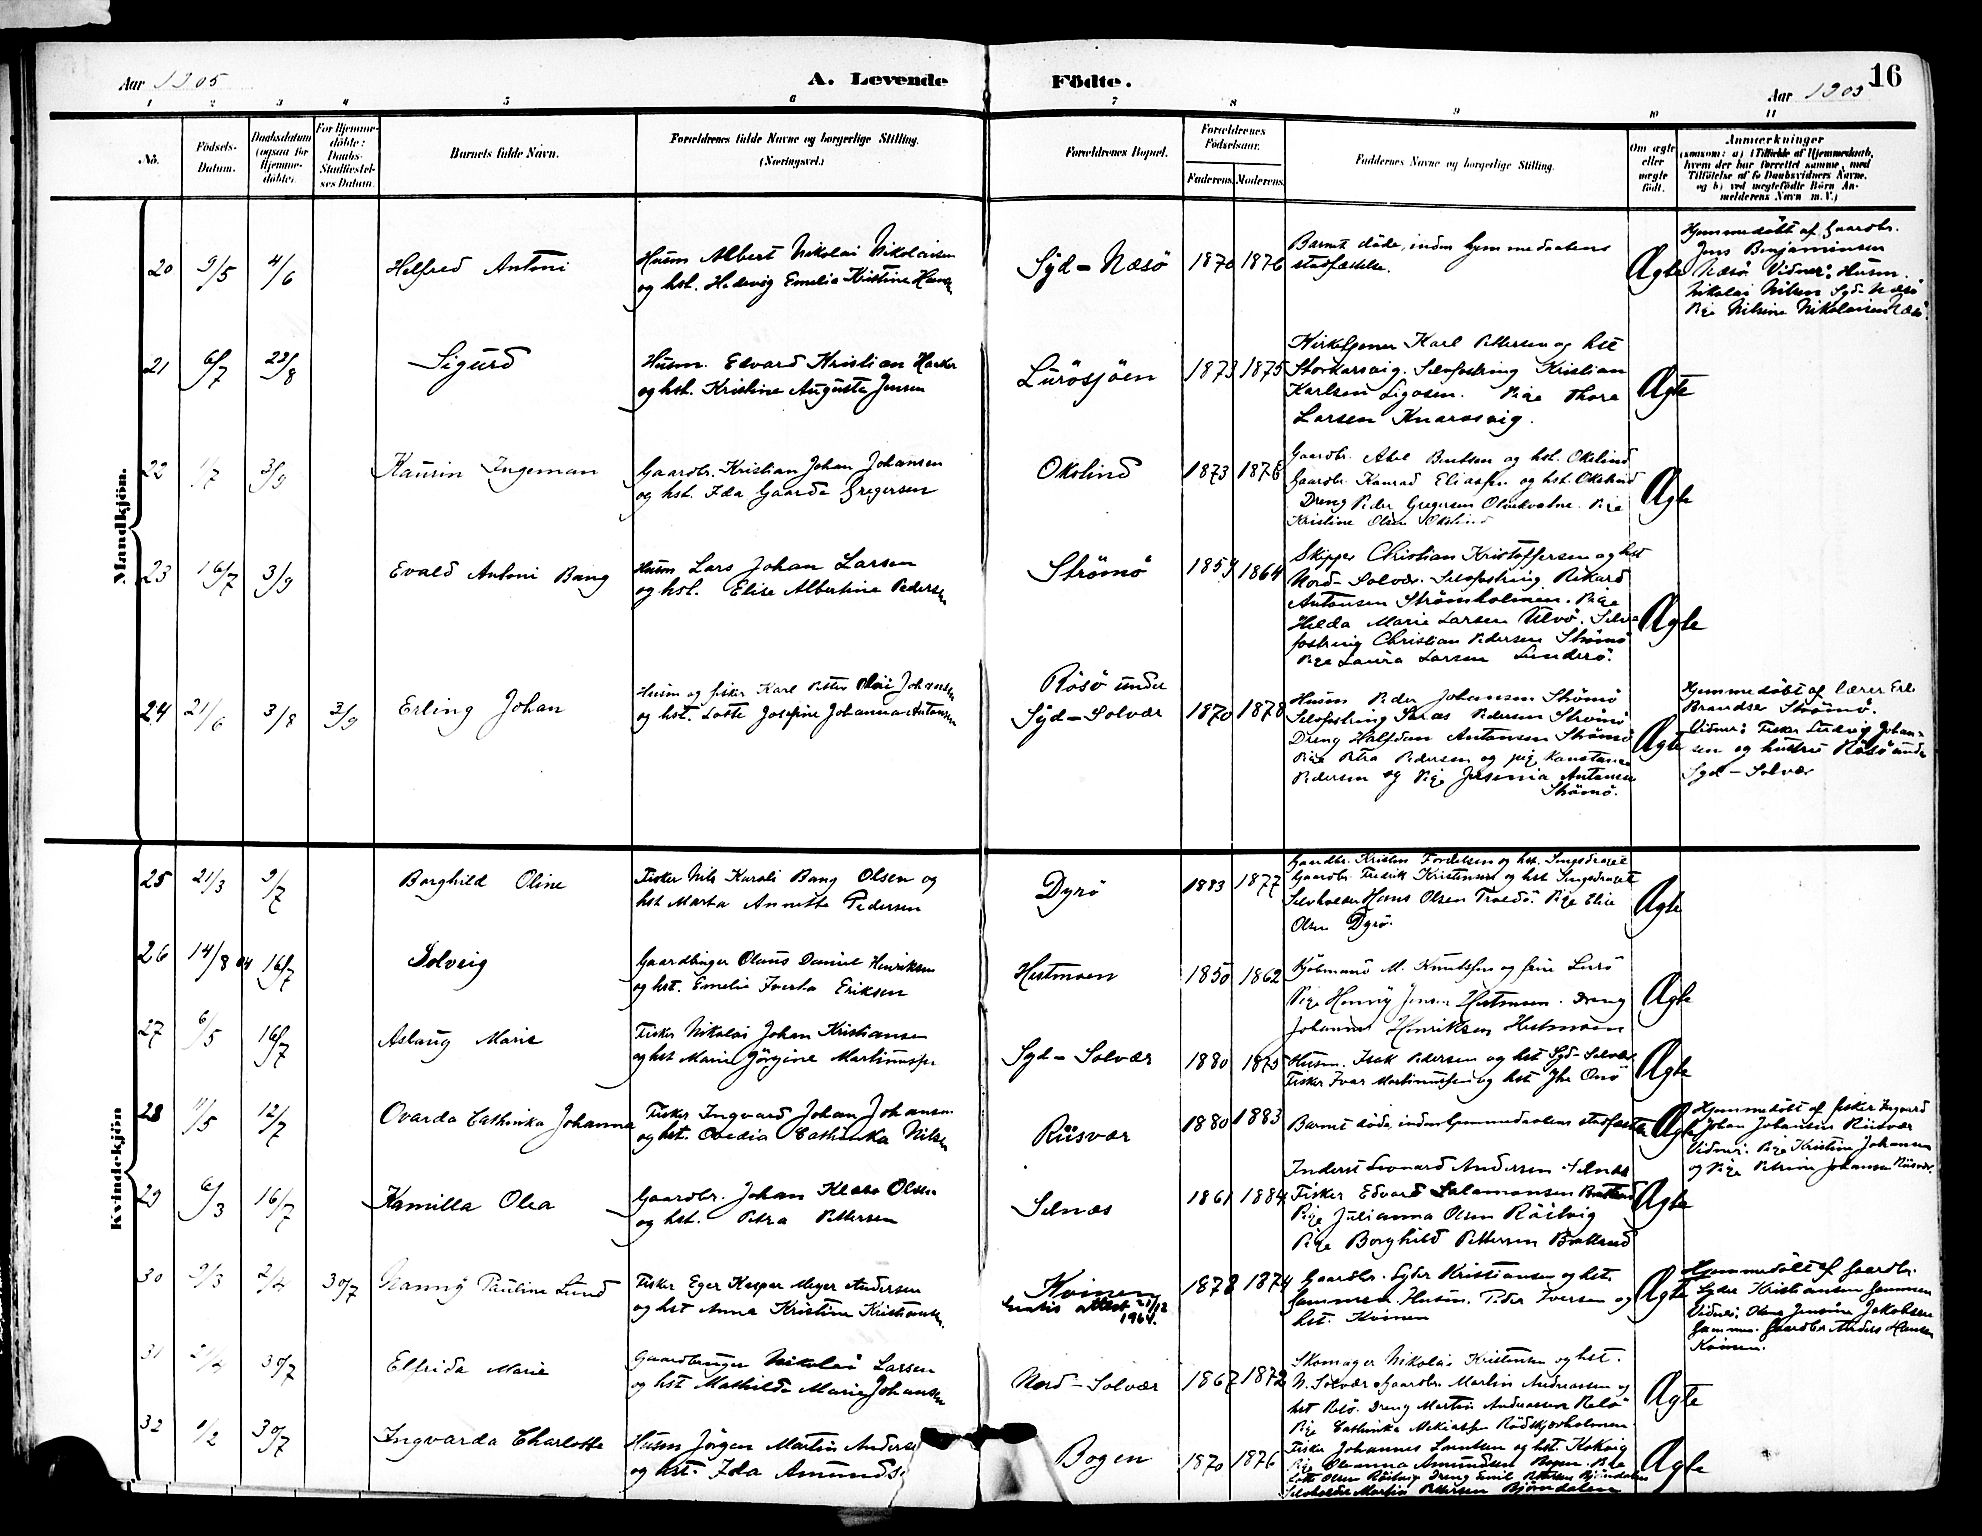 Aar 1905
A. Levende Födte.
Aar 1905
16
1 2 3 4 5 6 7 8 9 10 11
No.
Födsels-
Datum.
Daabsdatum
(ogsaa for
Hjemme-
döbte).
For Hjemme-
döbte:
Daabs-
Stadfæstel-
ses Datum.
Barnets fulde Navn.
Forældrenes fulde Navne og borgerlige Stilling.
(Næringsvei.)
Forældrenes Bopæl.
Forældrenes
Födselsaar.
Faderens. Moderens.
Faddernes Navne og borgerlige Stilling.
Om ægte
eller
uægte
født.
Anmærkninger
(saasom: a) i Tilfælde af Hjemmedaab,
hvem der har forrettet samme, med
Tilföielse af to Daabsvidners Navne,
og b) ved uægtefödte Börn An-
melderens Navn m. V.)
Mandkjön.
20 9/5 4/6 Helfred Antoni
Husm Albert Nikolai Nikolaisen
og hst. Hedevig Emelie Kristine Hansen
Syd-Næsö 1870 1876
Barnet döde, inden hjemmedaabens
stadfæstelse.
Ægte
Hjemmedöbt af Gaardbr.
Jens Benjaminsen
Næsö. Vidner: Husm.
Nikolai Nilsen Syd-Næsö
Pige Nilsine Nikolaisen Næsö
21 6/7 23/8 Sigurd
Husm. Edvard Kristian
og hst. Kristine Augusta Jensen
Lurösjöen 1873 1875
Kirketjener Karl Pettersen og hst
Storkarsvig. Selvfostring Kristian
Karlsen Pige Thora
Larsen Knarasvig.
Ægte
22 1/7 3/9 Kaurin Ingeman
Gaardbr. Kristian Johan Johansen
og hst. Ida Gaarda Gregersen
Okslind 1873 1876
Gaardbr. Abel Bentsen og hst. Okslind
Gaardbr. Konrad Eliassen og hst. Okslind
Dreng Peder Gregersen Pige
Kristine Olsen Okslind
Ægte
23 16/7 3/9 Evald Antoni Bang
Husm Lars Johan Larsen
og hst. Elise Albertine Pedersen
Strömö 1854 1864
Skipper Christian Kristoffersen og hst
Nord-Solvær. Selvfostring Rikard
Antonsen Strömholmen. Pige
Hilda Marie Larsen Selv-
fostring Christian Pedersen Strömö
Pige Laura Larsen Sunderö.
Ægte
24 21/6 3/8 3/9 Erling Johan
Husm og fisker Karl Petter Olai Johansen
og hst. Lotte Josefine Johanna Antonsen
Rösö under
Syd-Solvær 1870 1878
Husm Peder Johansen Strömö
Selvfostring Pedersen Strömö
Dreng Halfdan Antonsen Strömö
Pige Petra Pedersen og pige Konstanse
Pedersen og Pige Antonsen
Strömö.
Ægte
Hjemmedöbt af lærer Erl.
Brandser Strömö.
Vidner: Fisker Ludvig Johan-
sen og hustru Rösö under
Syd-Solvær
Kvindekjön
25 21/3 9/7 Borghild Oline
Fisker Nils Karoli Bang Olsen og
hst Marta Annette Pedersen
Dyrö 1883 1877
Gaardbr. Kristen og hst.
Gaardbr. Fredrik Kristensen og hst
Selvholder Hans Olsen Pige Elise
Olsen Dyrö.
Ægte
26 14/8 04 16/7 Solveig
Gaardbruger Olaus Daniel Henriksen
og hst. Emelie Iverta Eriksen
Hestmoen 1850 1862
Kjöbmand M. Knudtsen og frue Lurö
Pige Henny Jensen Hestmoen. Dreng
Johannes Henriksen Hestmoen
Ægte
27 6/5 16/7 Aslaug Marie
Fisker Nikolai Johan Kristiansen
og hst Marie Jörgine Martinussen
Syd-Solvær 1880 1875
Husm. Isak Pedersen og hst Syd-Solvær
Fisker Ivar Martinussen og hst
Ægte
28 11/5 12/7 Ovarda Cathinka Johanna
Fisker Ingvard Johan Johansen
og hst. Ovedia Cathinka Nilsen
Riisvær 1880 1883
Barnet döde, inden hjemmedaabens stadfæstelse
Ægte
Hjemmedöbt af fisker Ingvard
Johan Johansen Riisvær
Vidner: Pige Kristine Johansen
og Pige Petrine Johansen Riisvær.
29 6/3 16/7 Kamilla Olea
Gaardbr. Johan Olsen
og hst. Petra Pettersen
Selnæs 1861 1884
Inderst Leonard Andersen Selnæs
Fisker Edvard Salamonsen Bratland
Pige Julianna Olsen Röitvig
Pige Borghild Pettersen Bratland
Ægte
30 9/3 2/4 30/7 Nanny Pauline Lund
Fisker Eger Kasper Meyer Andersen
og hst Anna Kristine Kristiansen.
Kvinen
Gratis attest 21/12
1964.
1878 1874
Gaardbr. Syder Kristiansen og hst.
Sammen. Husm. Peder Iversen og
hst. Kvinen
Ægte
Hjemmedöbt af Gaardbr.
Syder Kristiansen
Vidner: Jakobsen
Gaardbr Anders Hansen
Kvinen.
31 21/4 30/7 Elfrida Marie
Gaardbruger Nikolai Larsen
og hst Mathilde Marie Johansen
Nord-Solvær 1867 1872
Skomager Nikolai Kristensen og hst.
N. Solvær. Gaardbr. Martin Andreassen og
hst Relö. Dreng Martin Andreassen Relö
Pige Cathinka
Ægte
32 1/2 30/7 Ingvarda Charlotte
Husm Jörgen Martin Anderse
og hst. Ida Amunds
Bogen 1870 1876
Fisker Johannes og hst. Kokvig
Pige Oleanna Amundsen Bogen. Pige
Lotte Olsen Röitvig Dreng Emil Pettersen Björndalen
Selvholder Martin Pettersen Björndalen
Ægte